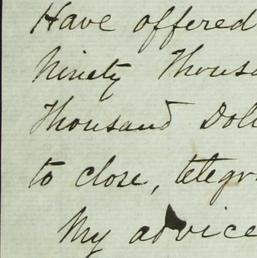 Have offered
Ninety Thousa
Thousand Doll
to close, telegr
My advice